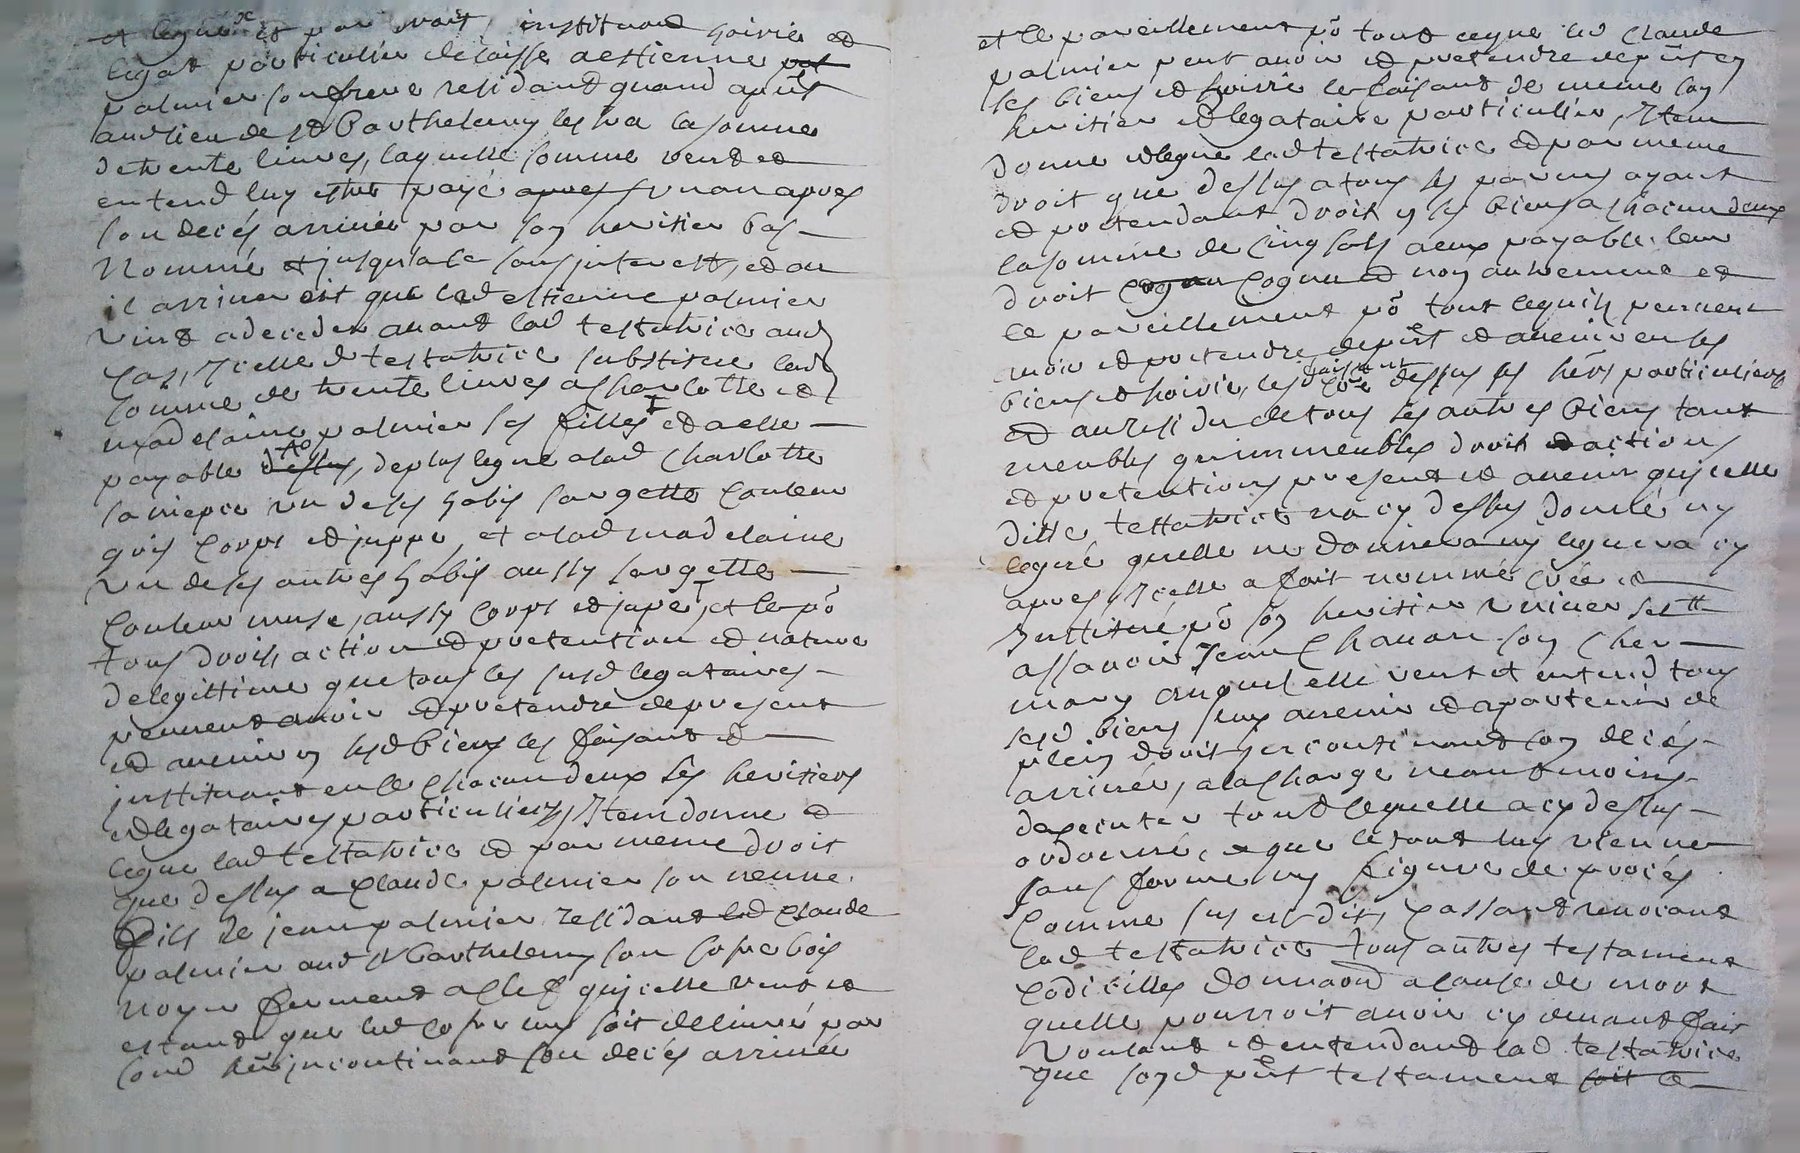 et legue et par droit institution hoirie et
legat particulier delaisse a estienne pal
palmier son frere residant quand a pñt
aud lieu de st Barthelemy les la somme
de trente livres, laquelle somme veut et
entend luy estre payé apres un an apres
son decés arrivée par son heritier bas
Nommé et jusqu'a ce sans interests, et ou
il arriveroit que led estienne palmier
vint a deceder avant lad testatrice aud
cas, Icelle d testatrice substitue lad
somme de trente livres a charlotte et
madelaine palmier ses filles et a elle
payable dessus, de plus legue a lad Charlotte
sa niepce un de ses habis sargette couleur
gris corps et juppe, et a lad madelaine
un de ses autres habis aussy sargette
couleur muse, aussy corps et jupe, et le po
tous droits action et pretention et nature
de legittime que tous les susd legataires
peuvent avoir et pretendre de present
et avenir en sesd biens les faisant et
instituant en ce chacun deux ses heritiers
et legataires particuliers, Item donne et
legue lad testatrice et par meme droit
que dessus a Claude palmier son neveu
fils de jean palmier residant led Claude
palmier aud st Barthelemy son cofre bois
noyer fermant a clef qu'icelle veut et
estand que led cofre luy soit delivré par
sond her incontinant son decés arrivée
et ce pareillement po tout ce que led Claude
palmier peut avoir et pretendre de pñt en
ses biens et hoirie le faisant de meme son
heritier et legataire particulier, Item
donne et legue lad testatrice et par meme
droit que dessus a tous ses parens ayant
et pretendant droit en ses biens a chacun deux
la somme de cinq sols a eux payable leur
droit cognu cognu et non autrement et
ce pareillement po tout ce qu'ils peuvent
avoir et pretendre de pñt et avenir en ses
biens et hoirie, les faisant come dessus ses hers particuliers
et au residu de tous ses autres biens tant
meubles qu'immeubles droit et actions
et pretentions present et avenir qu'icelle
ditte testatrice n'a cy dessus donné ny
legué quelle ne donnera ny leguera cy
apres, Icelle a fait nommé créé et
Institué po son heritier universelle
assavoir Jean Chavan son cher
mary auquel elle veut et entend tous
sesd biens luy avenir et apartenir de
plein droit incontinant son decés
arrivée, a la charge neantmoins
dexecuter tout ce quelle a cy dessus
ordonné, et que le tout luy vienne
sans forme ny figure de procés
Comme sus est dit, Cassant revocant
lad testatrice tous autres testament
codicilles donnaon a cause de mort
quelle pourroit avoir cy devant fait
voulant et entendant lad testatrice
que sond pñt testament soit ce